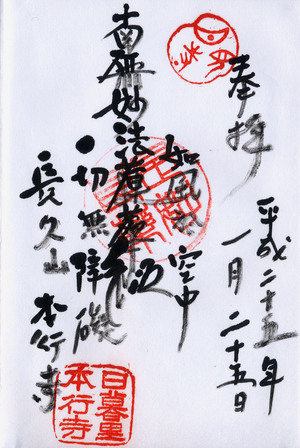 奉拝
平成二十五年
一月二十五日
如風於空中
南無妙法蓮華経
一切無障礙
長久山 本行寺
日暮里
本行寺